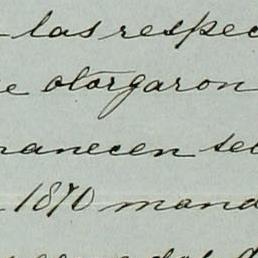 las respec
otorgaron
anecen sel
1870 mand